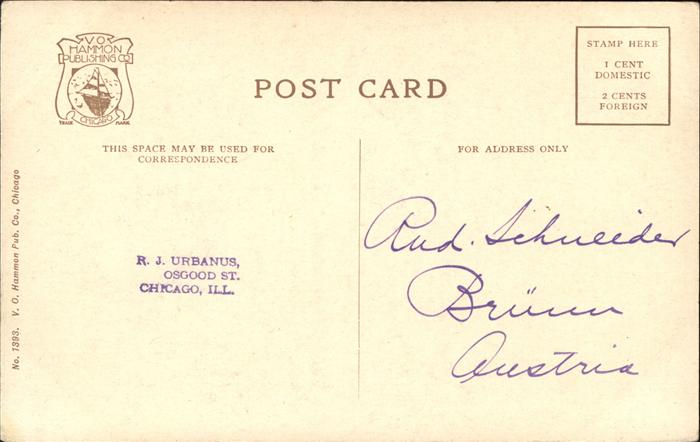 V.O.
HAMMON
PUBLISHING CO
CHICAGO
TRADE MARK
POST CARD
STAMP HERE
1 CENT
DOMESTIC
2 CENTS
FOREIGN
THIS SPACE MAY BE USED FOR
CORRESPONDENCE
FOR ADDRESS ONLY
No. 1393. V. O. Hammon Pub. Co., Chicago
R. J. URBANUS,
OSGOOD ST.
CHICAGO, ILL.
Rud. Schneider
Brünn
Austria